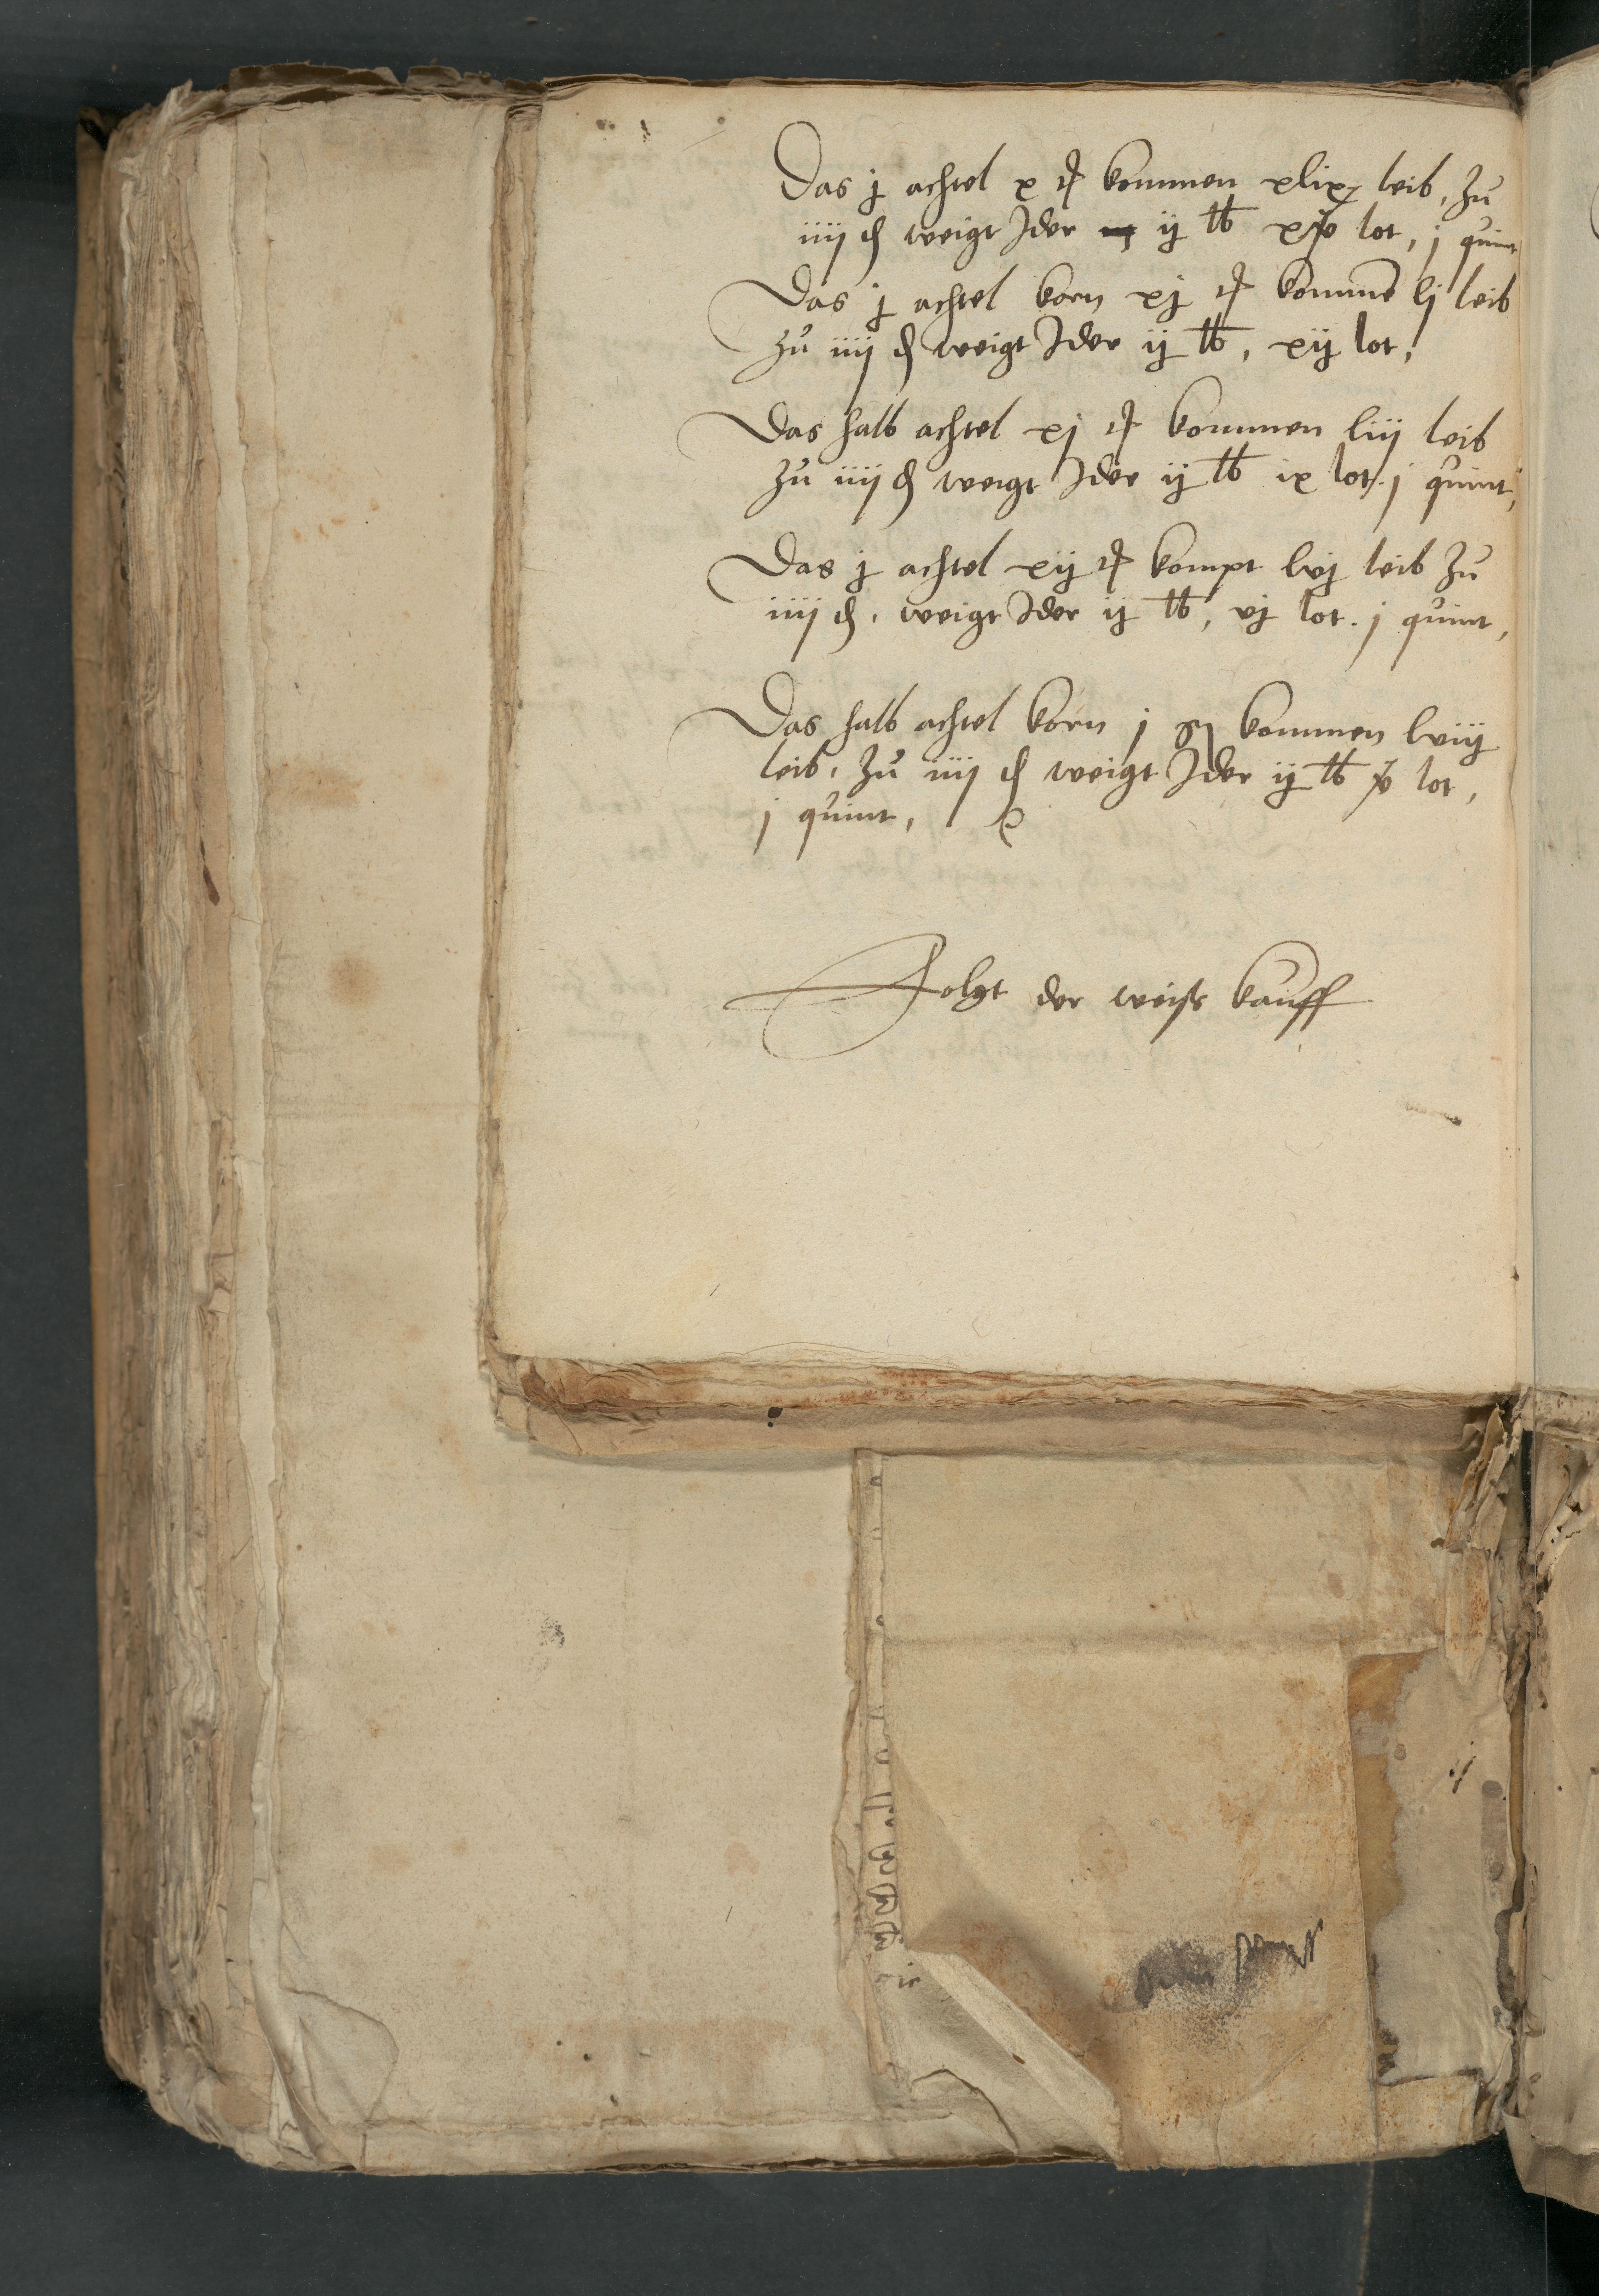 Das j achtel x ₰ kommen xlix leib, zu
iiij ₰ weigt Jder ij ℔ xv lot, j quint
Das j achtel korn xj ₰ komme͂ lj leib
zu iiij ₰ weigt Jder ij ℔, xij lot,
Das halb achtel xj ₰ kommen liij leib
zu iiij ₰ weigt Jder ij ℔ ix lot. j quint,
Das j achtel xij ₰ kompt lvj leib zu
iiij ₰, weigt Jder ij ℔, vj lot. j quint,
Das halb achtel korn j kommen lviij
leib, zu iiij ₰ weigt Jder ij ℔ lot,
j quint,
Folgt der weiß kauff
ij